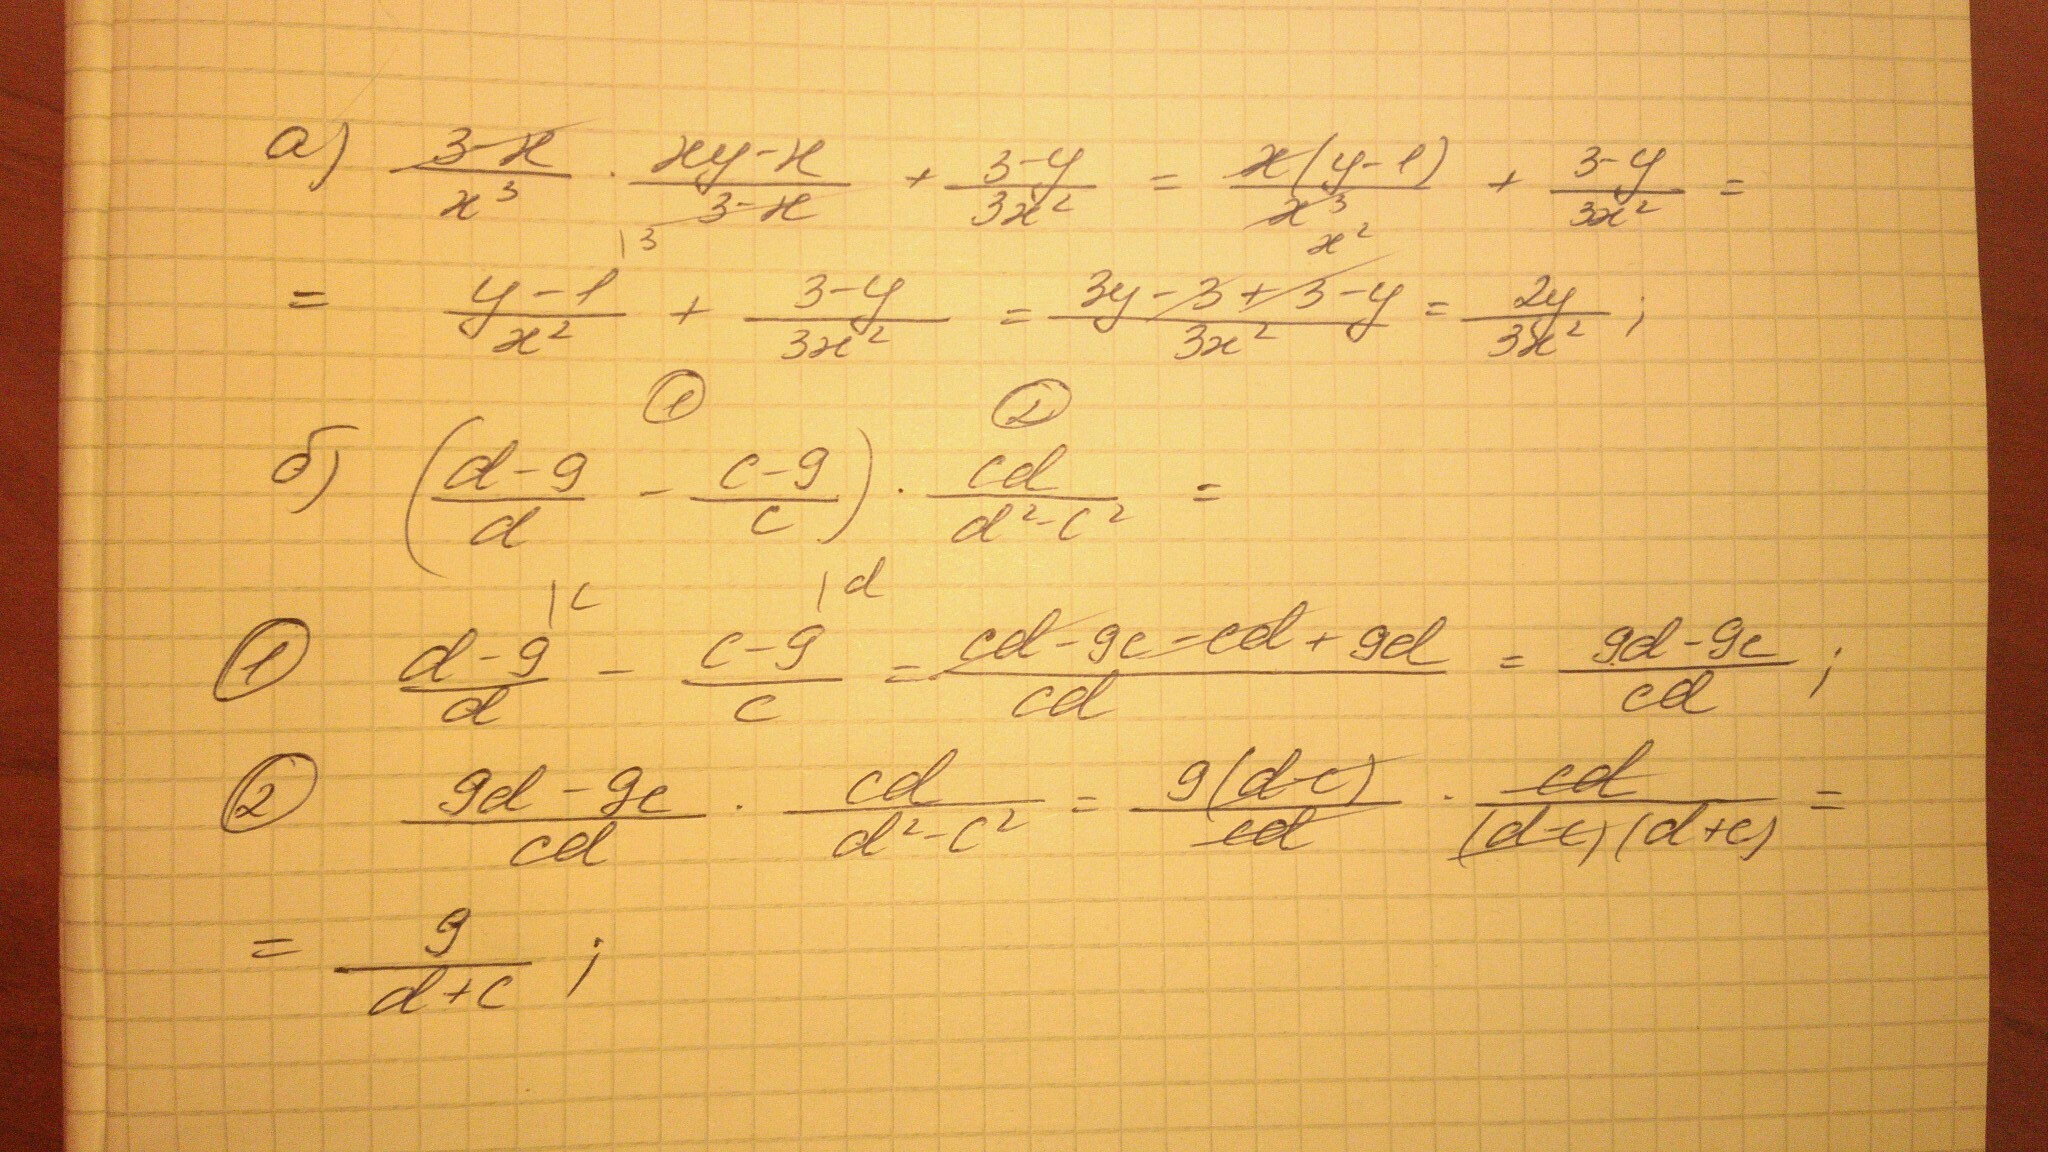 а) (3-x)/x³ · (xy-x)/(3-x) + (3-y)/3x² = x(y-1)/x³ x² + (3-y)/3x² =
= (y-1)/x² |3 + (3-y)/3x² = (3y-3+3-y)/3x² = 2y/3x² ;
① ②
б) ((d-9)/d - (c-9)/c) · cd/(d²-c²) =
① (d-9)/d |c - (c-9)/c |d = (cd-9c-cd+9d)/cd = (9d-9c)/cd ;
② (9d-9c)/cd · cd/(d²-c²) = 9(d-c)/cd · cd/(d-c)(d+c) =
= 9/(d+c) ;